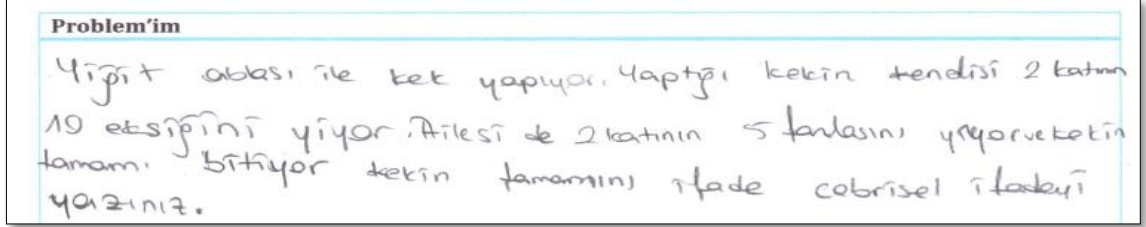 Problem'im
Yiğit ablası ile kek yapıyor. Yaptığı kekin kendisi 2 katının
19 eksiğini yiyor. Ailesi de 2 katının 5 fazlasını yiyor ve kekin
tamamı bitiyor kekin tamamını ifade cebrisel ifadeyi
yazınız.